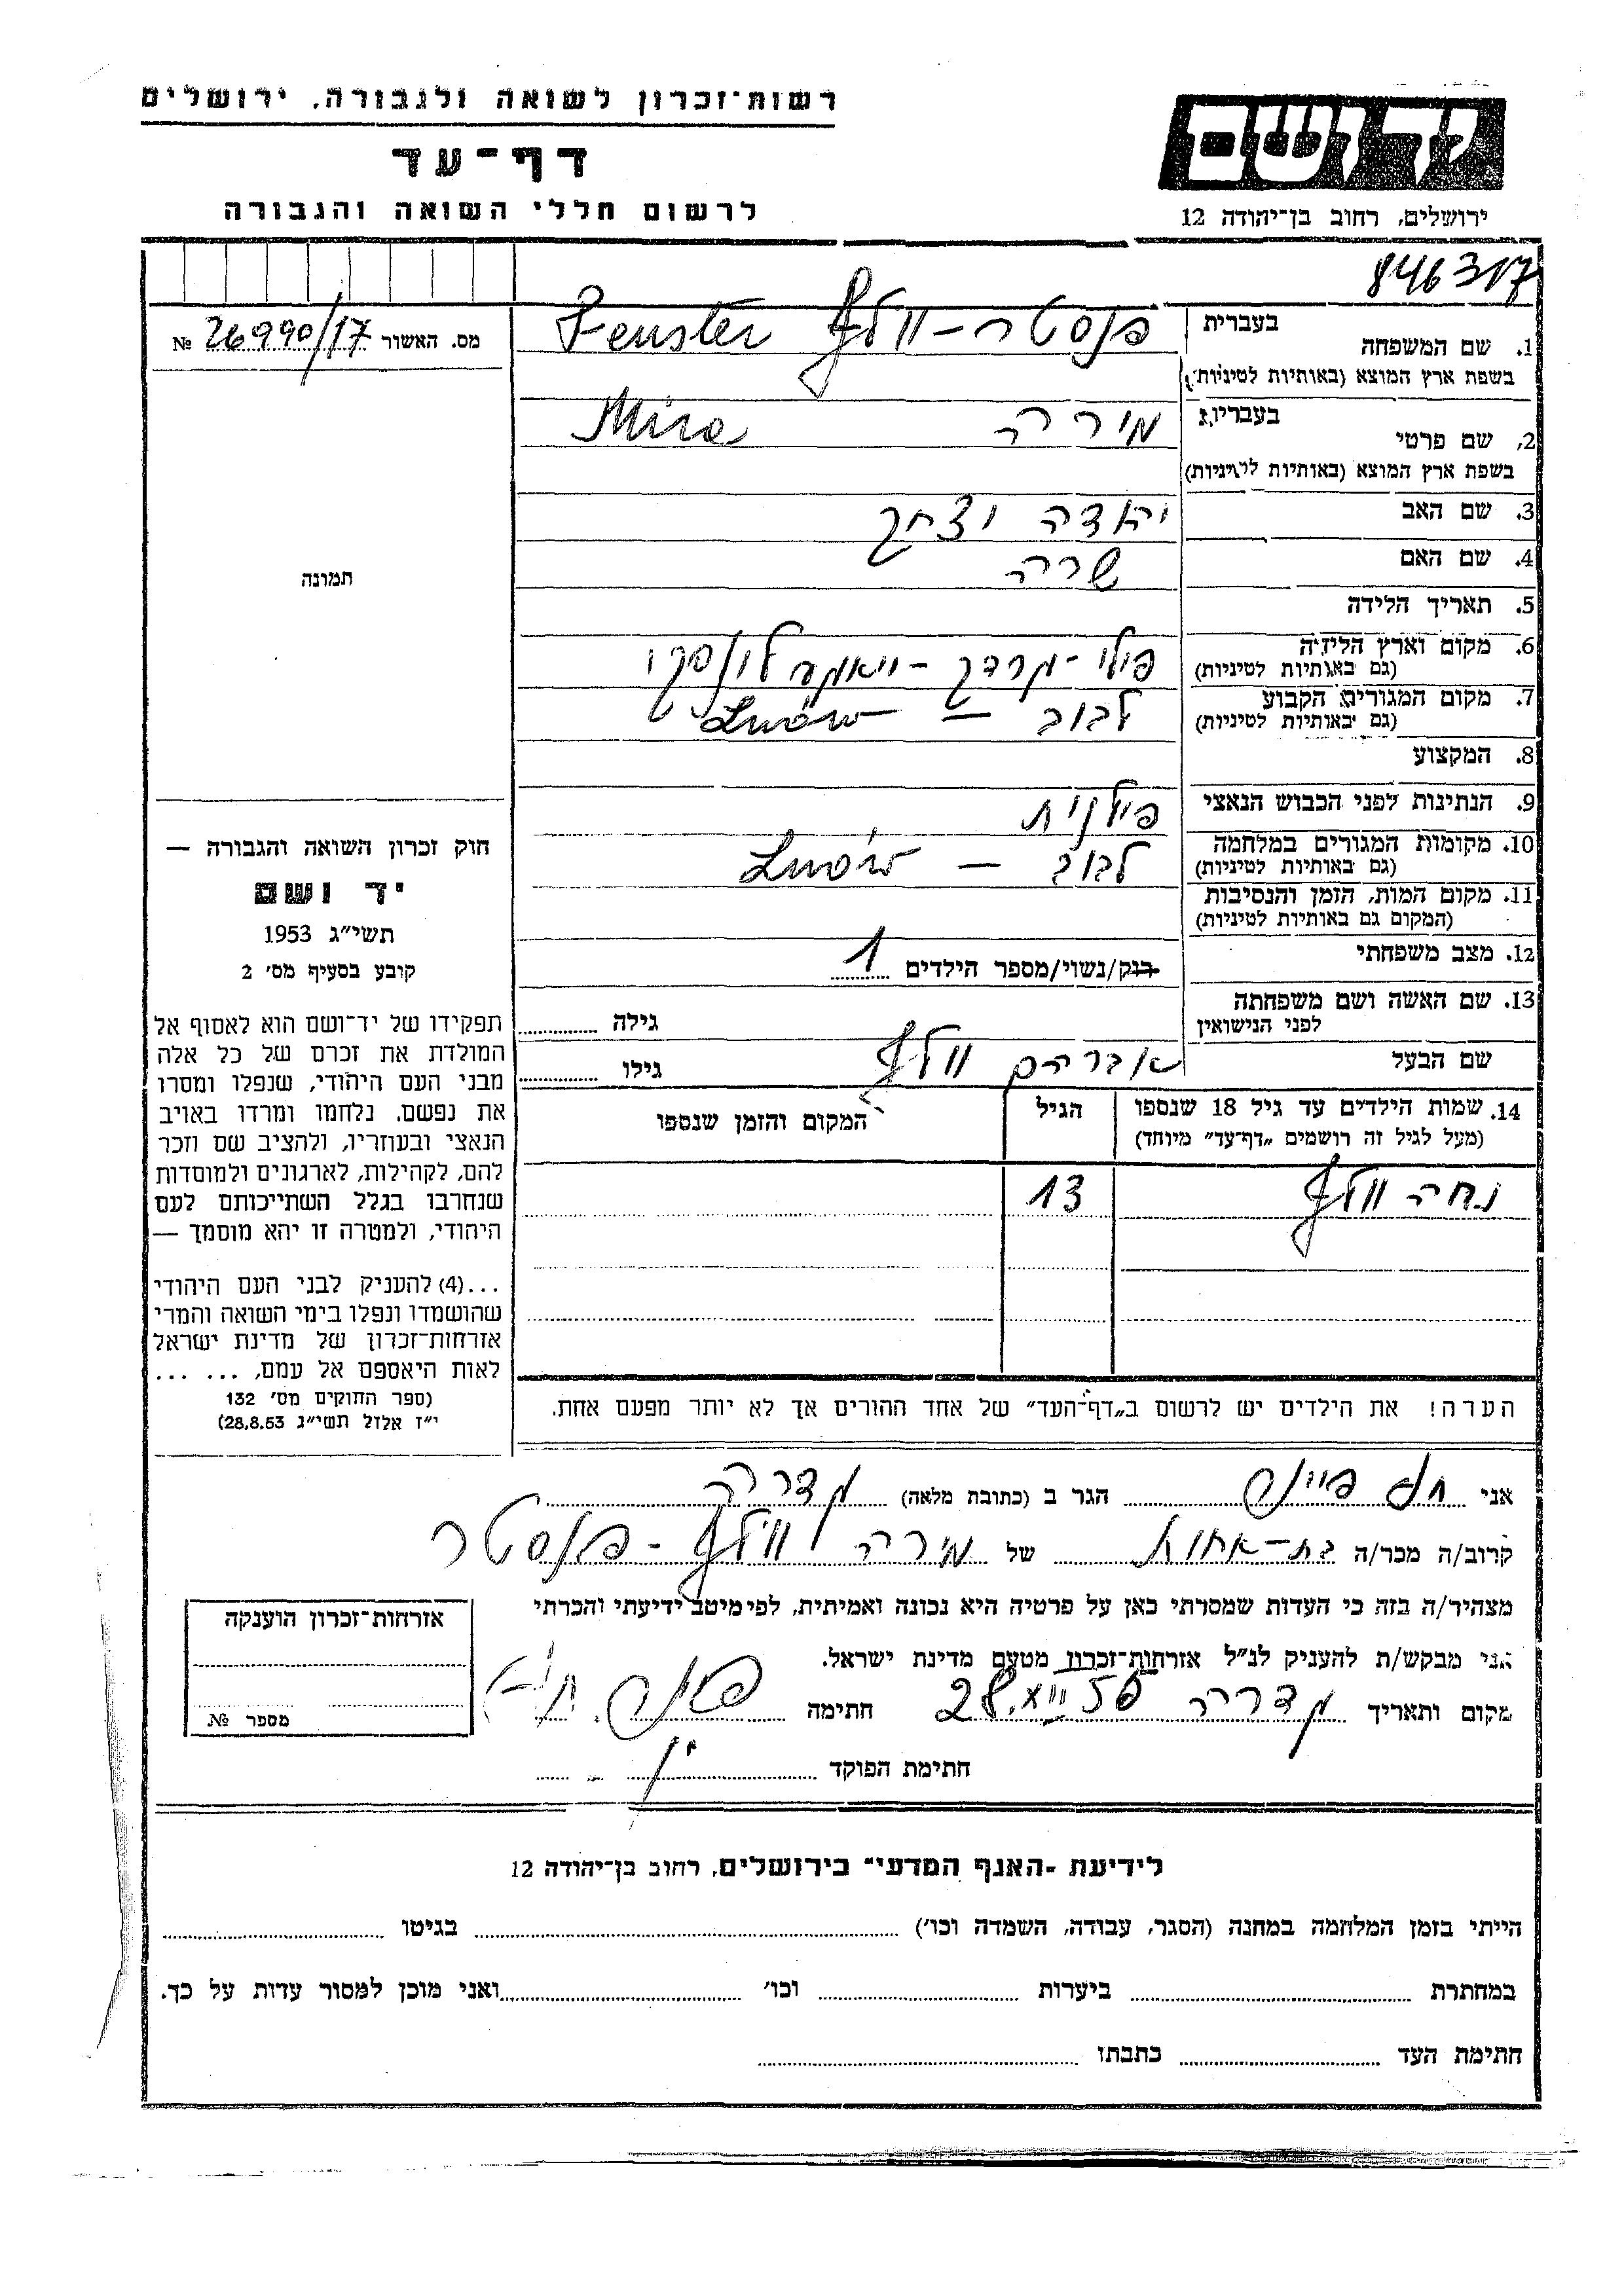 רשות־זכרון לשואה ולגבורה, ירושלים
דף־עד
לרשום חללי השואה והגבורה
יד ושם
ירושלים, רחוב בן־יהודה 12
846317
מס. האשור 26990/17 №
תמונה
1. שם המשפחה בעברית פנסטר-וולף Fenster
בשפת ארץ המוצא (באותיות לטיניות)
2. שם פרטי בעברית מירה Mira
בשפת ארץ המוצא (באותיות לטיניות)
3. שם האב יהודה יצחק
4. שם האם שרה
5. תאריך הלידה
6. מקום וארץ הלידה
(גם באותיות לטיניות)
7. מקום המגורים הקבוע לבוב - Lwów
(גם באותיות לטיניות)
8. המקצוע
9. הנתינות לפני הכבוש הנאצי פולנית
10. מקומות המגורים במלחמה לבוב - Lwów
(גם באותיות לטיניות)
11. מקום המות, הזמן והנסיבות
(המקום גם באותיות לטיניות)
12. מצב משפחתי רוק/נשוי/מספר הילדים 1
13. שם האשה ושם משפחתה
לפני הנישואין גילה
שם הבעל אברהם וולף גילו
14. שמות הילדים עד גיל 18 שנספו הגיל המקום והזמן שנספו
(מעל לגיל זה רושמים „דף־עד” מיוחד)
וולף 13
הערה! את הילדים יש לרשום ב„דף־העד” של אחד ההורים אך לא יותר מפעם אחת.
חוק זכרון השואה והגבורה —
יד ושם
תשי״ג 1953
קובע בסעיף מס׳ 2
תפקידו של יד־ושם הוא לאסוף אל
המולדת את זכרם של כל אלה
מבני העם היהודי, שנפלו ומסרו
את נפשם, נלחמו ומרדו באויב
הנאצי ובעוזריו, ולהציב שם וזכר
להם, לקהילות, לארגונים ולמוסדות
שנחרבו בגלל השתייכותם לעם
היהודי, ולמטרה זו יהא מוסמך —
...(4) להעניק לבני העם היהודי
שהושמדו ונפלו בימי השואה והמרי
אזרחות־זכרון של מדינת ישראל
לאות היאספם אל עמם, ... ...
(ספר החוקים מס׳ 132
י״ז אלול תשי״ג 28.8.53)
אני הגר ב (כתובת מלאה) גדרה
קרוב/ה מכר/ה בת-אחות של מירה וולף-פנסטר
מצהיר/ה בזה כי העדות שמסרתי כאן על פרטיה היא נכונה ואמיתית, לפי מיטב ידיעתי והכרתי
אני מבקש/ת להעניק לנ״ל אזרחות־זכרון מטעם מדינת ישראל.
מקום ותאריך גדרה 28. חתימה
חתימת הפוקד
אזרחות־זכרון הוענקה
מספר №
לידיעת ״האגף המדעי״ בירושלים, רחוב בן־יהודה 12
הייתי בזמן המלחמה במחנה (הסגר, עבודה, השמדה וכו׳) בגיטו
במחתרת ביערות וכו׳ ואני מוכן למסור עדות על כך.
חתימת העד כתבתו